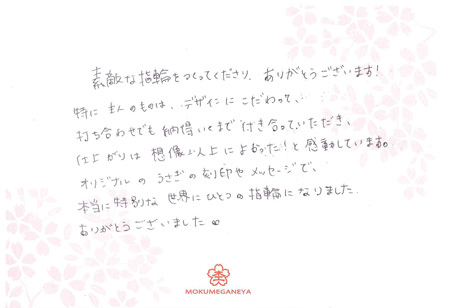 素敵な指輪をつくってくださり、ありがとうございます！
特に主人のものは、デザインにこだわって、
打ち合わせでも納得いくまで付き合っていただき、
仕上がりは想像以上によかった！と感動しています。
オリジナルのうさぎの刻印やメッセージで、
本当に特別な世界にひとつの指輪になりました。
ありがとうございました
MOKUMEGANEYA